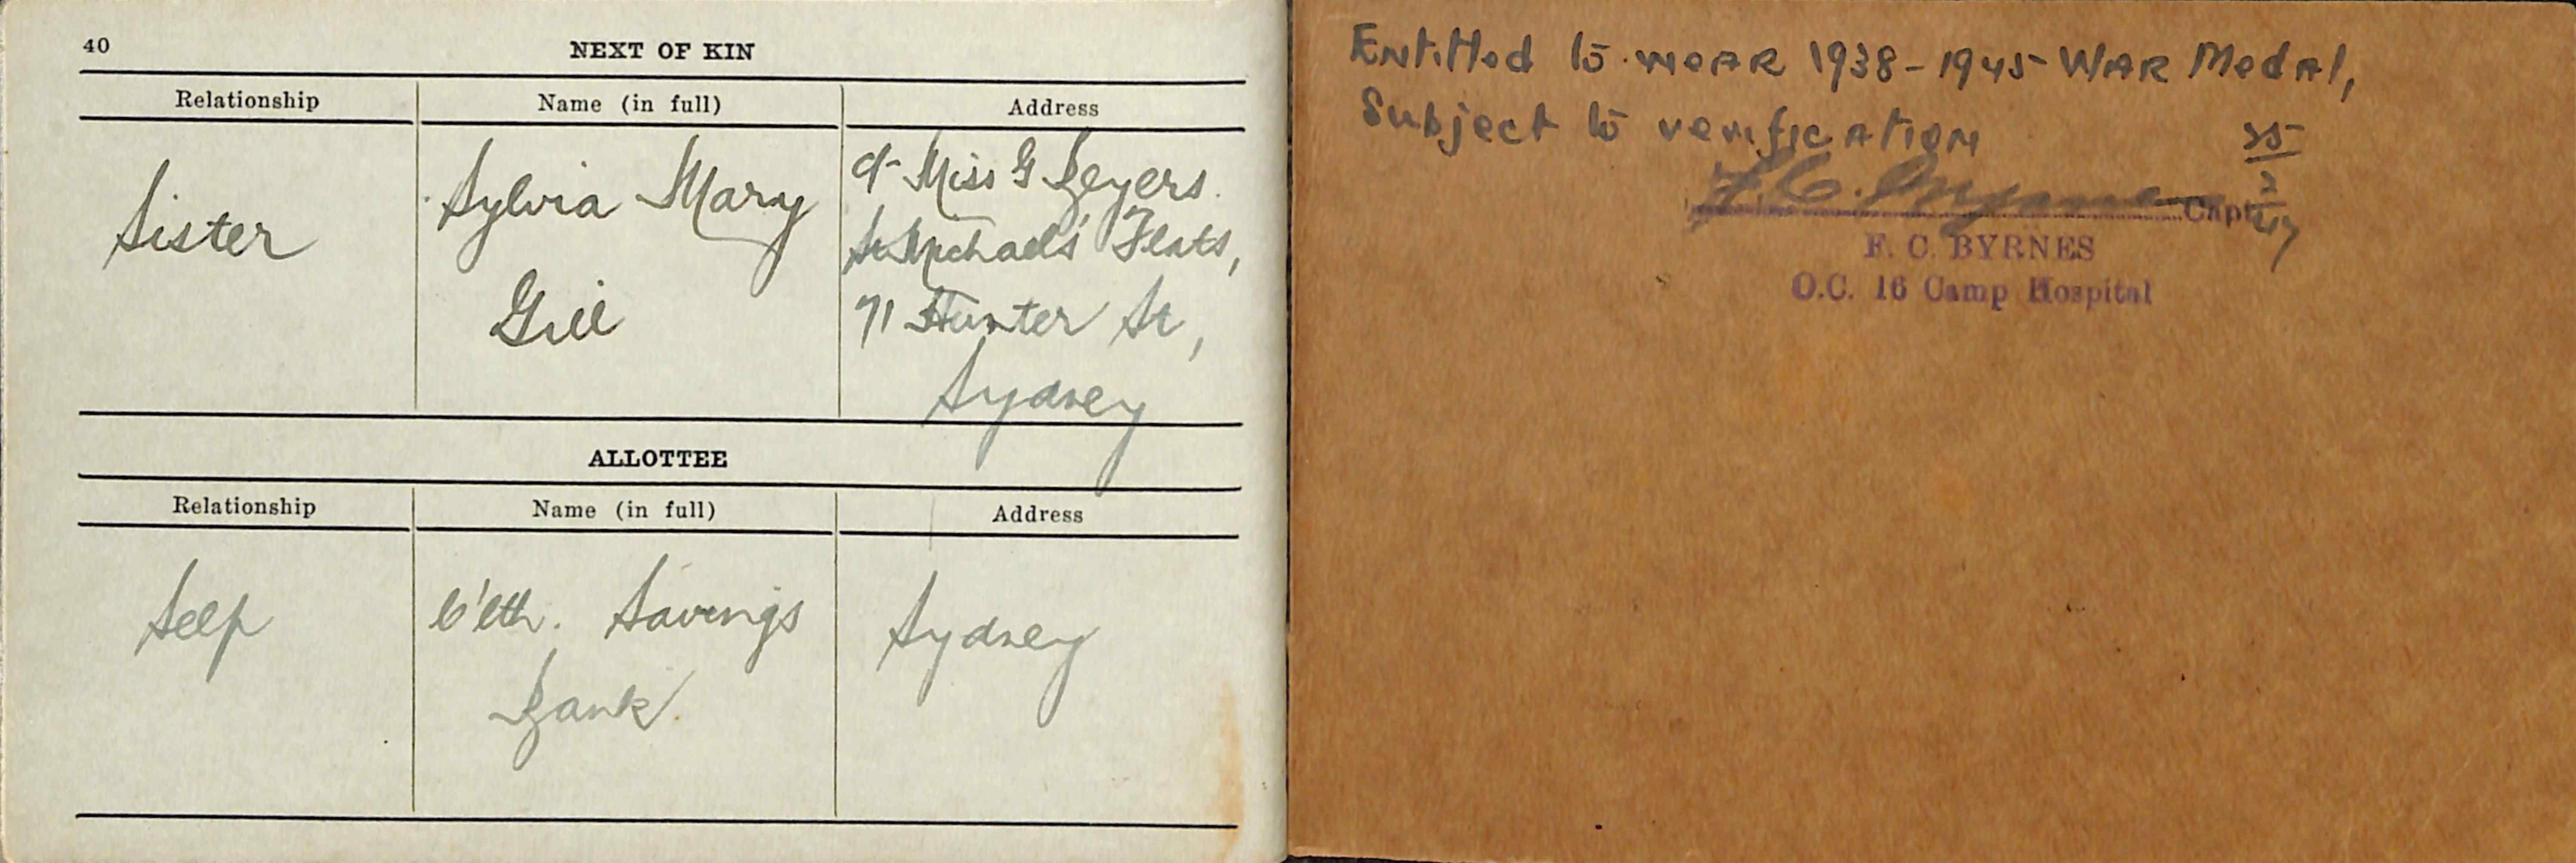 40
NEXT OF KIN
Relationship Name (in full) Address
Sister
Sylvia Mary
Gill
c/- Miss G Beyers.
St Michaels' Flats,
71 Hunter St,
Sydney
ALLOTTEE
Relationship Name (in full) Address
Self
C'wlth. Savings
Bank.
Sydney
Entitled to wear 1938-1945 War Medal,
Subject to verification
F. C. Byrnes Capt
F. C. BYRNES
O.C. 16 Camp Hospital